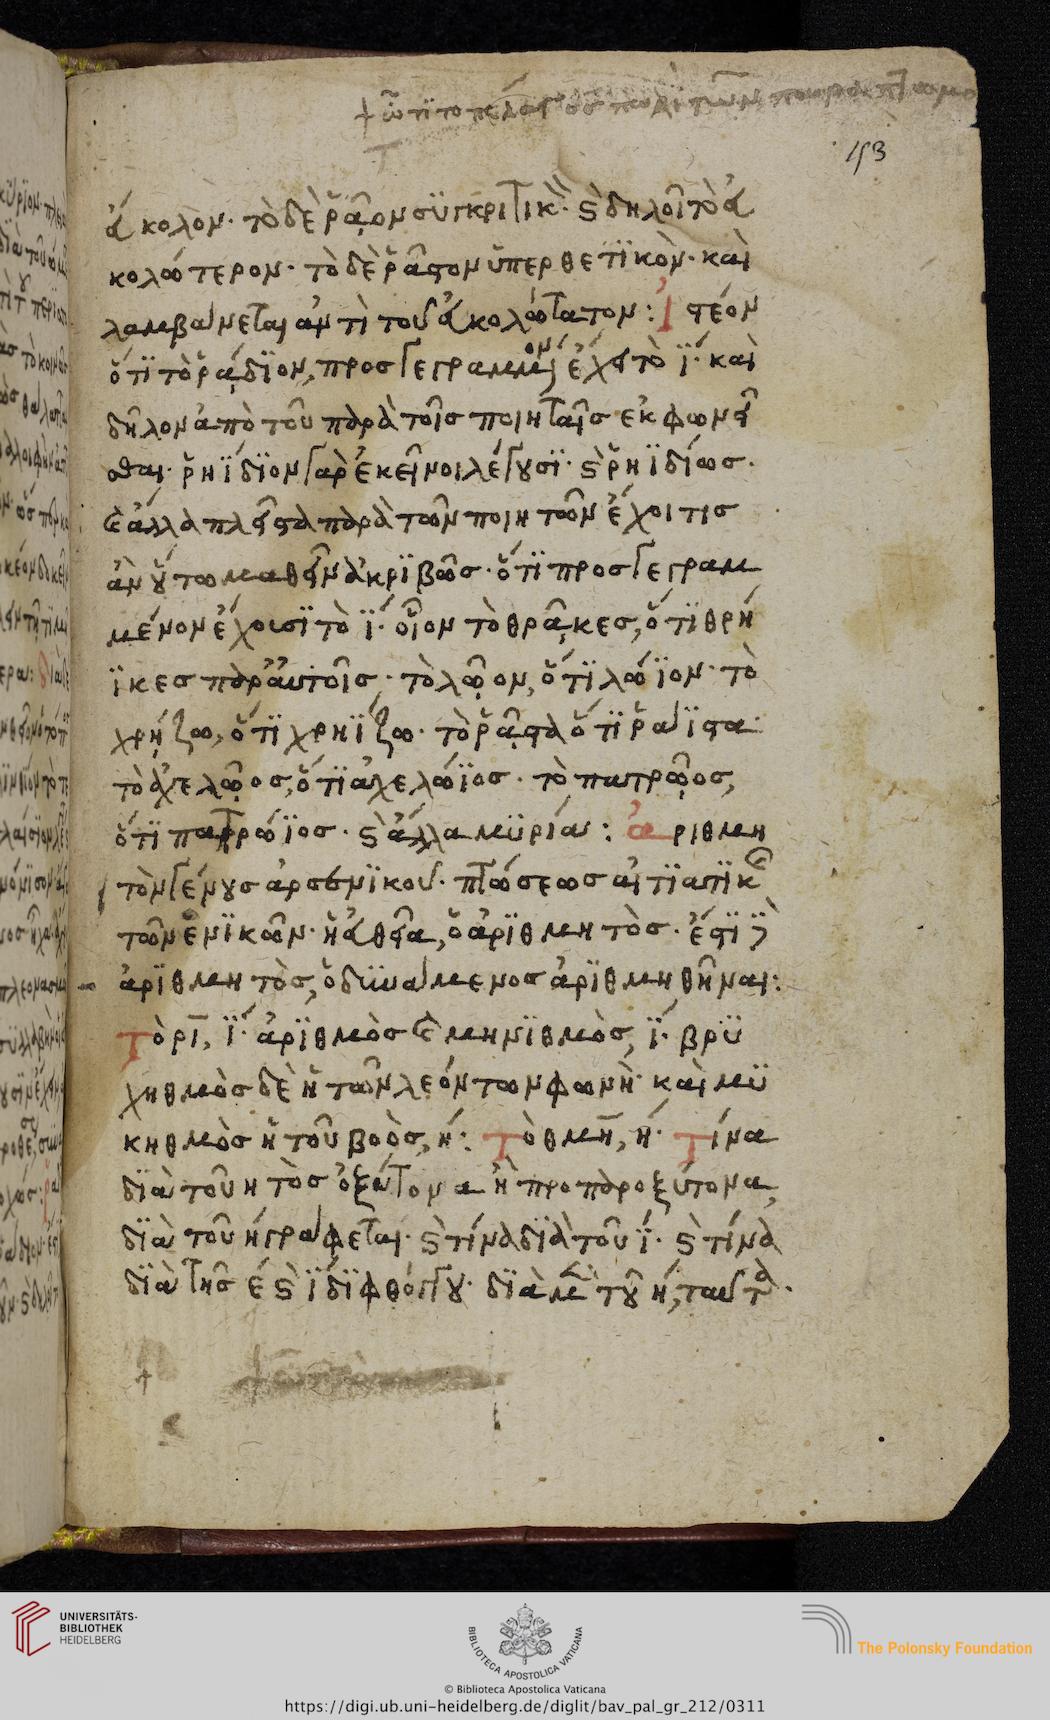 153
εὔκολον· τὸ δὲ ῥᾷον συγκριτικὸν· καὶ δηλοῖ τὸ εὐ
κολώτερον· τὸ δὲ ῥᾷστον ὑπερθετϊκὸν· καὶ
λαμβάνεται ἀντὶ τοῦ εὐκολώτατον: ἰστέον
ὅτϊ τὸ ῥᾴδϊον, προσγεγραμμένον ἔχει τὸ ϊ· καὶ
δῆλον ἀπὸ τοῦ παρὰ τοῖς ποιηταῖς ἐκφωνεῖ
σθαι· ῥηΐδϊον γὰρ ἐκεῖνοι λέγουσϊ· καὶ ῥηϊδίως·
καὶ ἄλλα πλεῖστα παρὰ τῶν ποιητῶν ἔχοι τις
ἂν οὕτω μαθεῖν ἀκρϊβῶς· ὅτϊ προσγεγραμ
μένον ἔχουσϊ τὸ ϊ· οἷον τὸ θρᾷκες, ὅτϊ θρή
ϊκες παρ' αὐτοῖς· τὸ λῷον, ὅτϊ λώϊον· τὸ
χρῄζω, ὅτϊ χρηΐζω· τὸ ῥᾷστα ὅτϊ ῥάϊστα·
τὸ ἀχελῷος, ὅτϊ ἀχελώϊος· τὸ πατρῷος,
ὅτϊ πατρώϊος· καὶ ἄλλα μϋρία: ἀριθμη
τὸν γένους ἀρσενϊκοῦ· πτώσεως αἰτϊατϊκῆς
τῶν ἑνϊκῶν· ἡ εὐθεῖα, ὁ ἀρϊθμητὸς· ἔστϊ δὲ
ἀρϊθμητὸς, ὁ δϋνάμενος ἀρϊθμηθῆναι:
Τὸ ρι, ϊ· ἀρϊθμὸς καὶ μηνϊθμὸς, ϊ· βρϋ
χηθμὸς δὲ ἡ τῶν λεόντων φωνὴ· καὶ μϋ
κηθμὸς ἡ τοῦ βοὸς, η: Τὸ θμη, η· Τίνα
δϊὰ τοῦ ητος ὀξύτονα ἢ προπαροξύτονα,
δϊὰ τοῦ η γράφεται· καὶ τίνα δϊὰ τοῦ ϊ· καὶ τίνα
δϊὰ τῆς ε καὶ ϊ δϊφθόγγου· δϊὰ μὲν τοῦ η, ταῦτα·
UNIVERSITÄTS-
BIBLIOTHEK
HEIDELBERG
BIBLIOTECA APOSTOLICA VATICANA
The Polonsky Foundation
© Biblioteca Apostolica Vaticana
https://digi.ub.uni-heidelberg.de/diglit/bav_pal_gr_212/0311